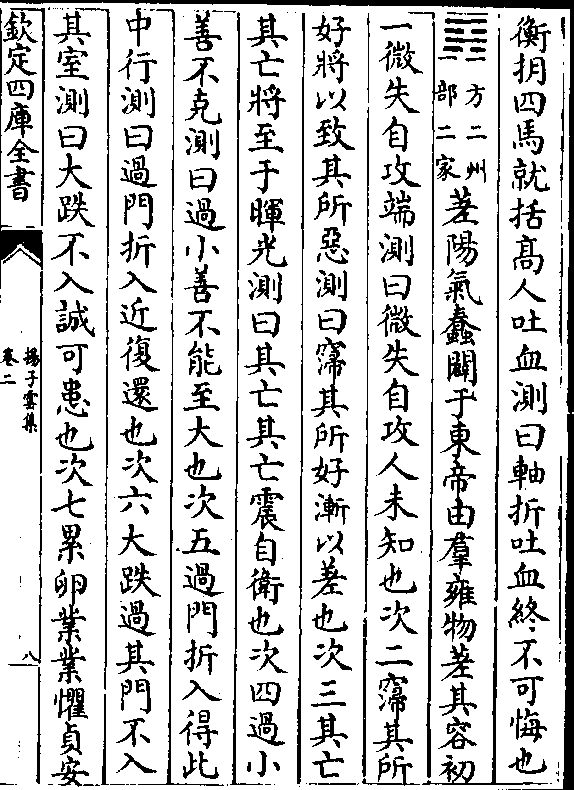 衡抈四馬就括高人吐血測曰軸折吐血終不可悔也
一方二州
一部二家
差陽氣蠢闢于東帝由羣雍物差其容初
一微失自攻端測曰微失自攻人未知也次二㝠其所
好將以致其所惡測曰㝠其所好漸以差也次三其亡
其亡將至于暉光測曰其亡其亡震自衛也次四過小
善不克測曰過小善不能至大也次五過門折入得此
中行測曰過門折入近復還也次六大跌過其門不入
其室測曰大跌不入誠可患也次七累卵業業懼貞安
欽定四庫全書
揚子雲集
卷二
八